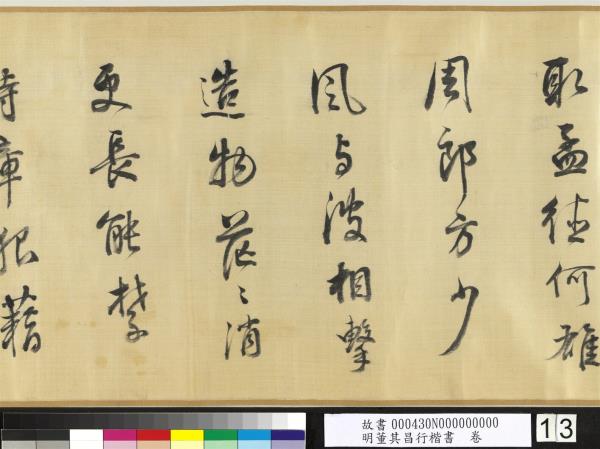 取孟德何雄
周郎方少
風与波相擊
造物茫々消
更長能禁
狼藉
故書 000430N000000000
明董其昌行楷書 卷
13